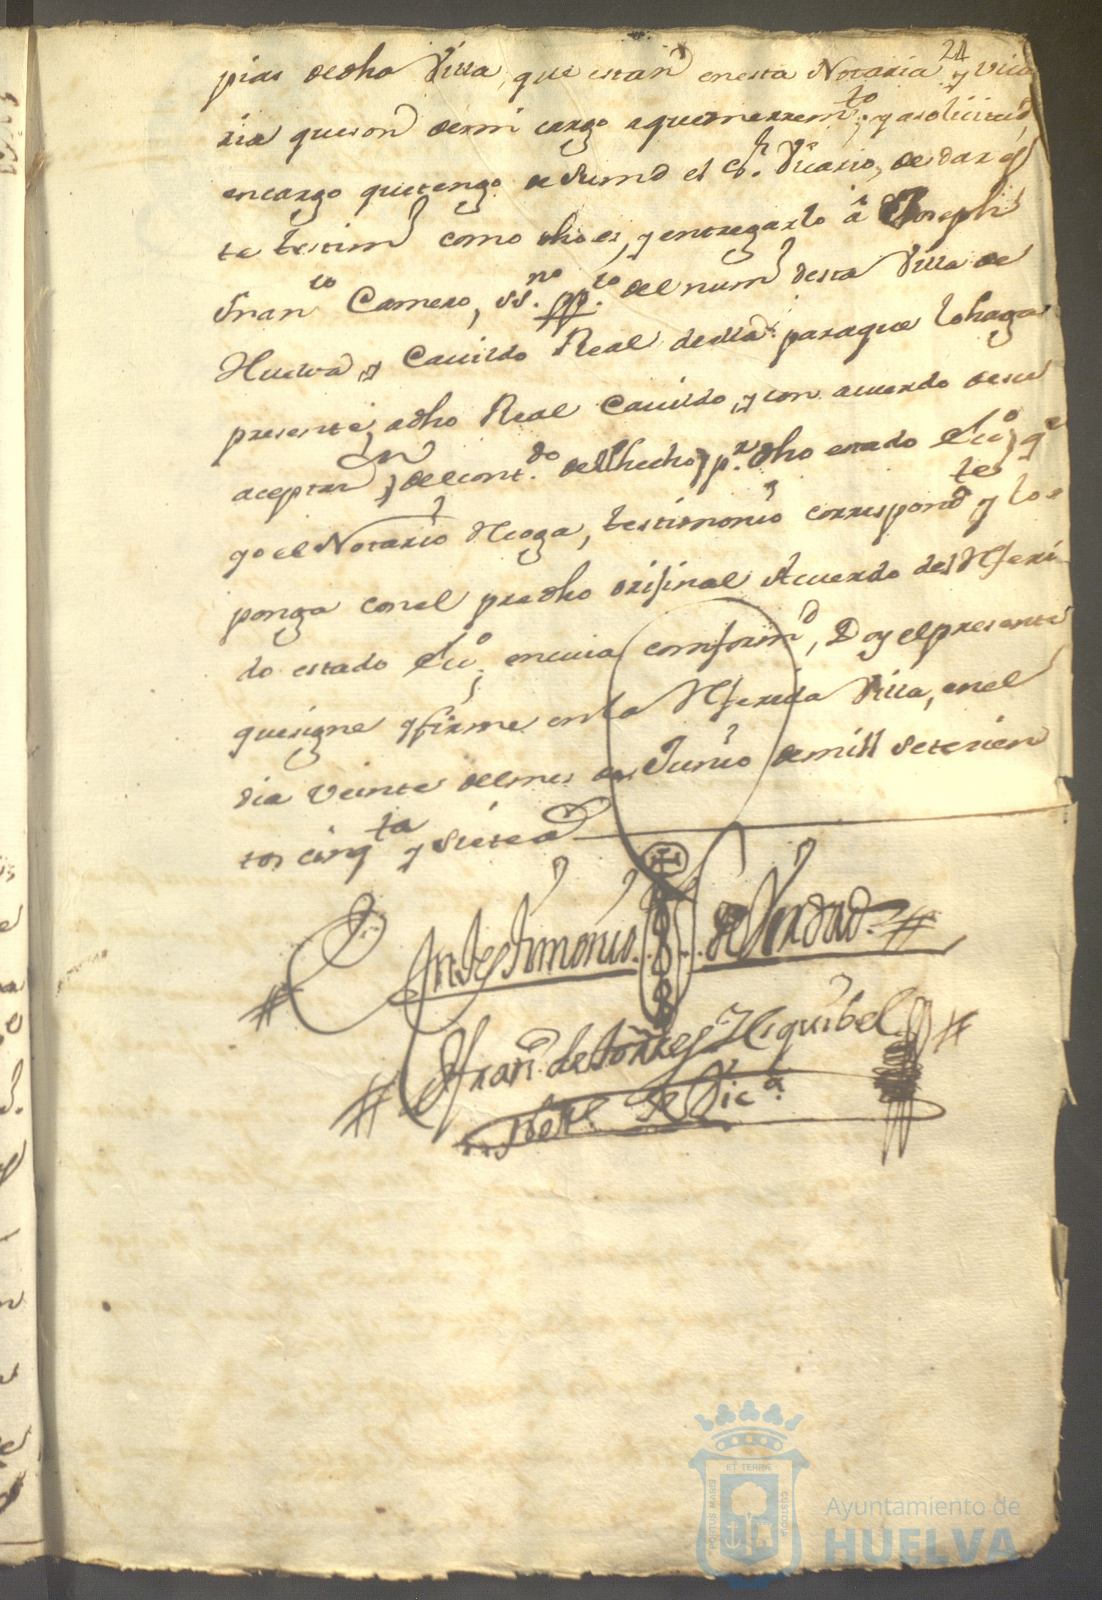 24
pias de dha Villa, que estan en esta Notaria, y Vica
ria que son de mi cargo a que me rremto, y a solicitud
encargo que tengo de su md el Sr. Vicario, de dar es
te testimo como dho es, y entregarlo â Joseph
Franco Camero, ssno. ppco. del num desta Villa de
Huelva, y Cavildo Real della, para que lo haga
presente, a dho Real Cavildo, y con acuerdo desu
aceptan, del contdo. del hecho, pr. dho estado Ecco, qe
yo el Notario rrecoga, testimonio correspondtes y lo
ponga con el predho orijinal Acuerdo del rreferi
do estado Ecco, en cuia conformd, Doy el presente
que signe y firme en la rreferida Villa, en el
dia veinte del mes de Junio de mill setecien
tos cinqta y siete a
En testimonio de Verdad.
Fran. de Torres Esquibel
de Vica.
ET TERRÆ
CUSTODIA
PORTUS MARIS
Ayuntamiento de
HUELVA